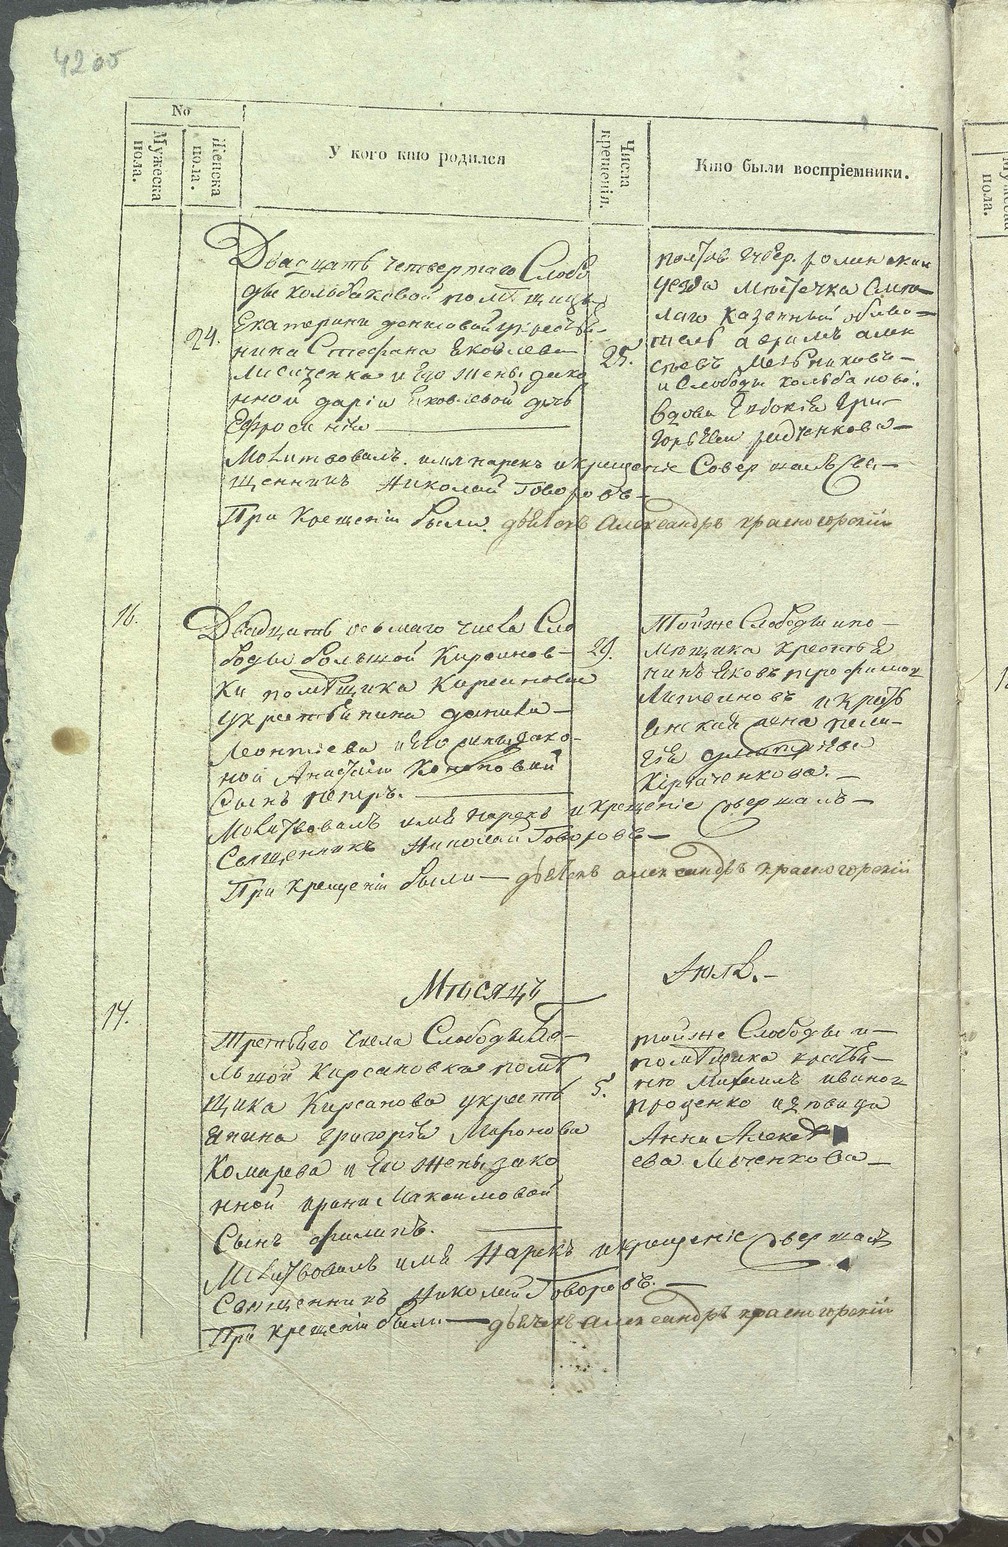 42 об
No
Мужеска пола.
Женска пола.
У кого кто родился
Числа крещенія.
Кто были воспріемники.
24.
Двадцать четвертаго Слобо
ды кольбаковой помѣщицы
Екатерины у крестья-
нина Стефана Яковлева
Лисиченка и Его жены зако
нной дарїи Яковлевой дочь
Ефросинїя
25.
полтав губер. роменскаи
уезда местечка Смѣ-
лаго казенный обыва-
тель алек
сѣевъ Мельниковъ-
и Слободы кольбаковой
вдова Евдокїя Гри-
горьева
Молитвовалъ имя нарекъ и крещенїе Совершалъ Свя-
щенникъ Николай Говоровъ-
При Крещенїи были дьячекъ Александръ красногорскїй
16.
Двадцать осьмаго числа Сло
боды большой Кирсанов-
ки помѣщика Кирсанова
у крестьянина данила-
Леонтїева и Его жены зако-
ной Анастасїи
Сынъ петръ.
29.
Тойже Слободы и по-
мѣщика крестья
нинъ Яковъ трофимов
Литвиновъ и крес
янская жена пела-
гїя дмитрїева
Кириченкова.-
Молитвовалъ имя нарекъ и крещенїе Совершалъ-
Священникъ Николай Говоровъ-
При крещенїи были- дьячекъ александръ красногорскїй
Мѣсяцъ Июль.-
17.
Третьяго числа Слободы Бо-
льшой Кирсановки помѣ
щика Кирсанова у кресть
янина григорїя Миронова
Комарева и Его жены зако
нной ирины Максимовой
Сынъ филипъ.
5.
тойже Слободы и-
помѣщика кресья-
нин Михаилъ иванов
проценко и девица
Анна Алексе
ева
Молитвовалъ имя Нарекъ и крещенїе Совершалъ
Священникъ Николай Говоровъ.-
При крещенїи были- дьячекъ александръ красногорскїй